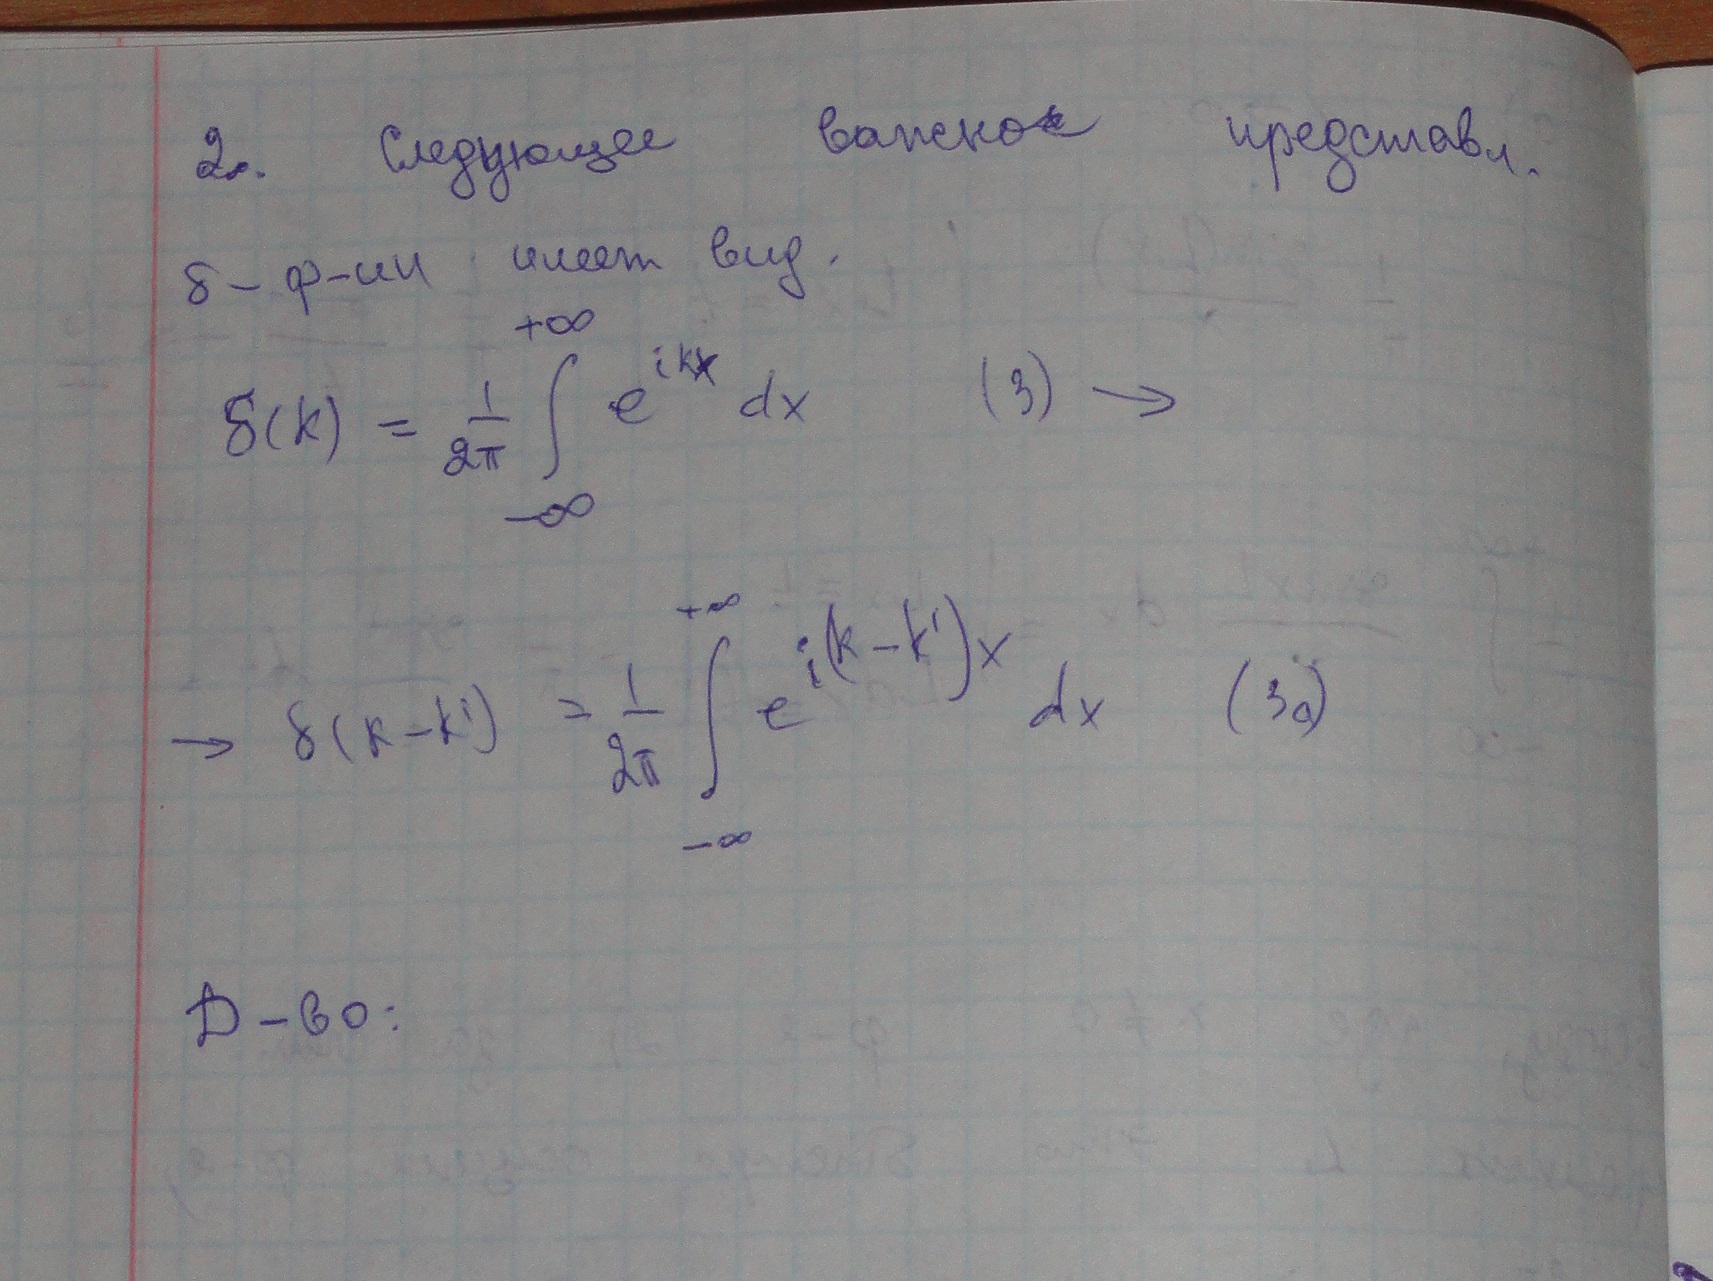 2. Следующее важное представл.
δ-ф-ии имеет вид.
δ(k) = 1/2π ∫_{-∞}^{+∞} e^{ikx} dx (3) →
→ δ(k-k') = 1/2π ∫_{-∞}^{+∞} e^{i(k-k')x} dx (3а)
Д-во: